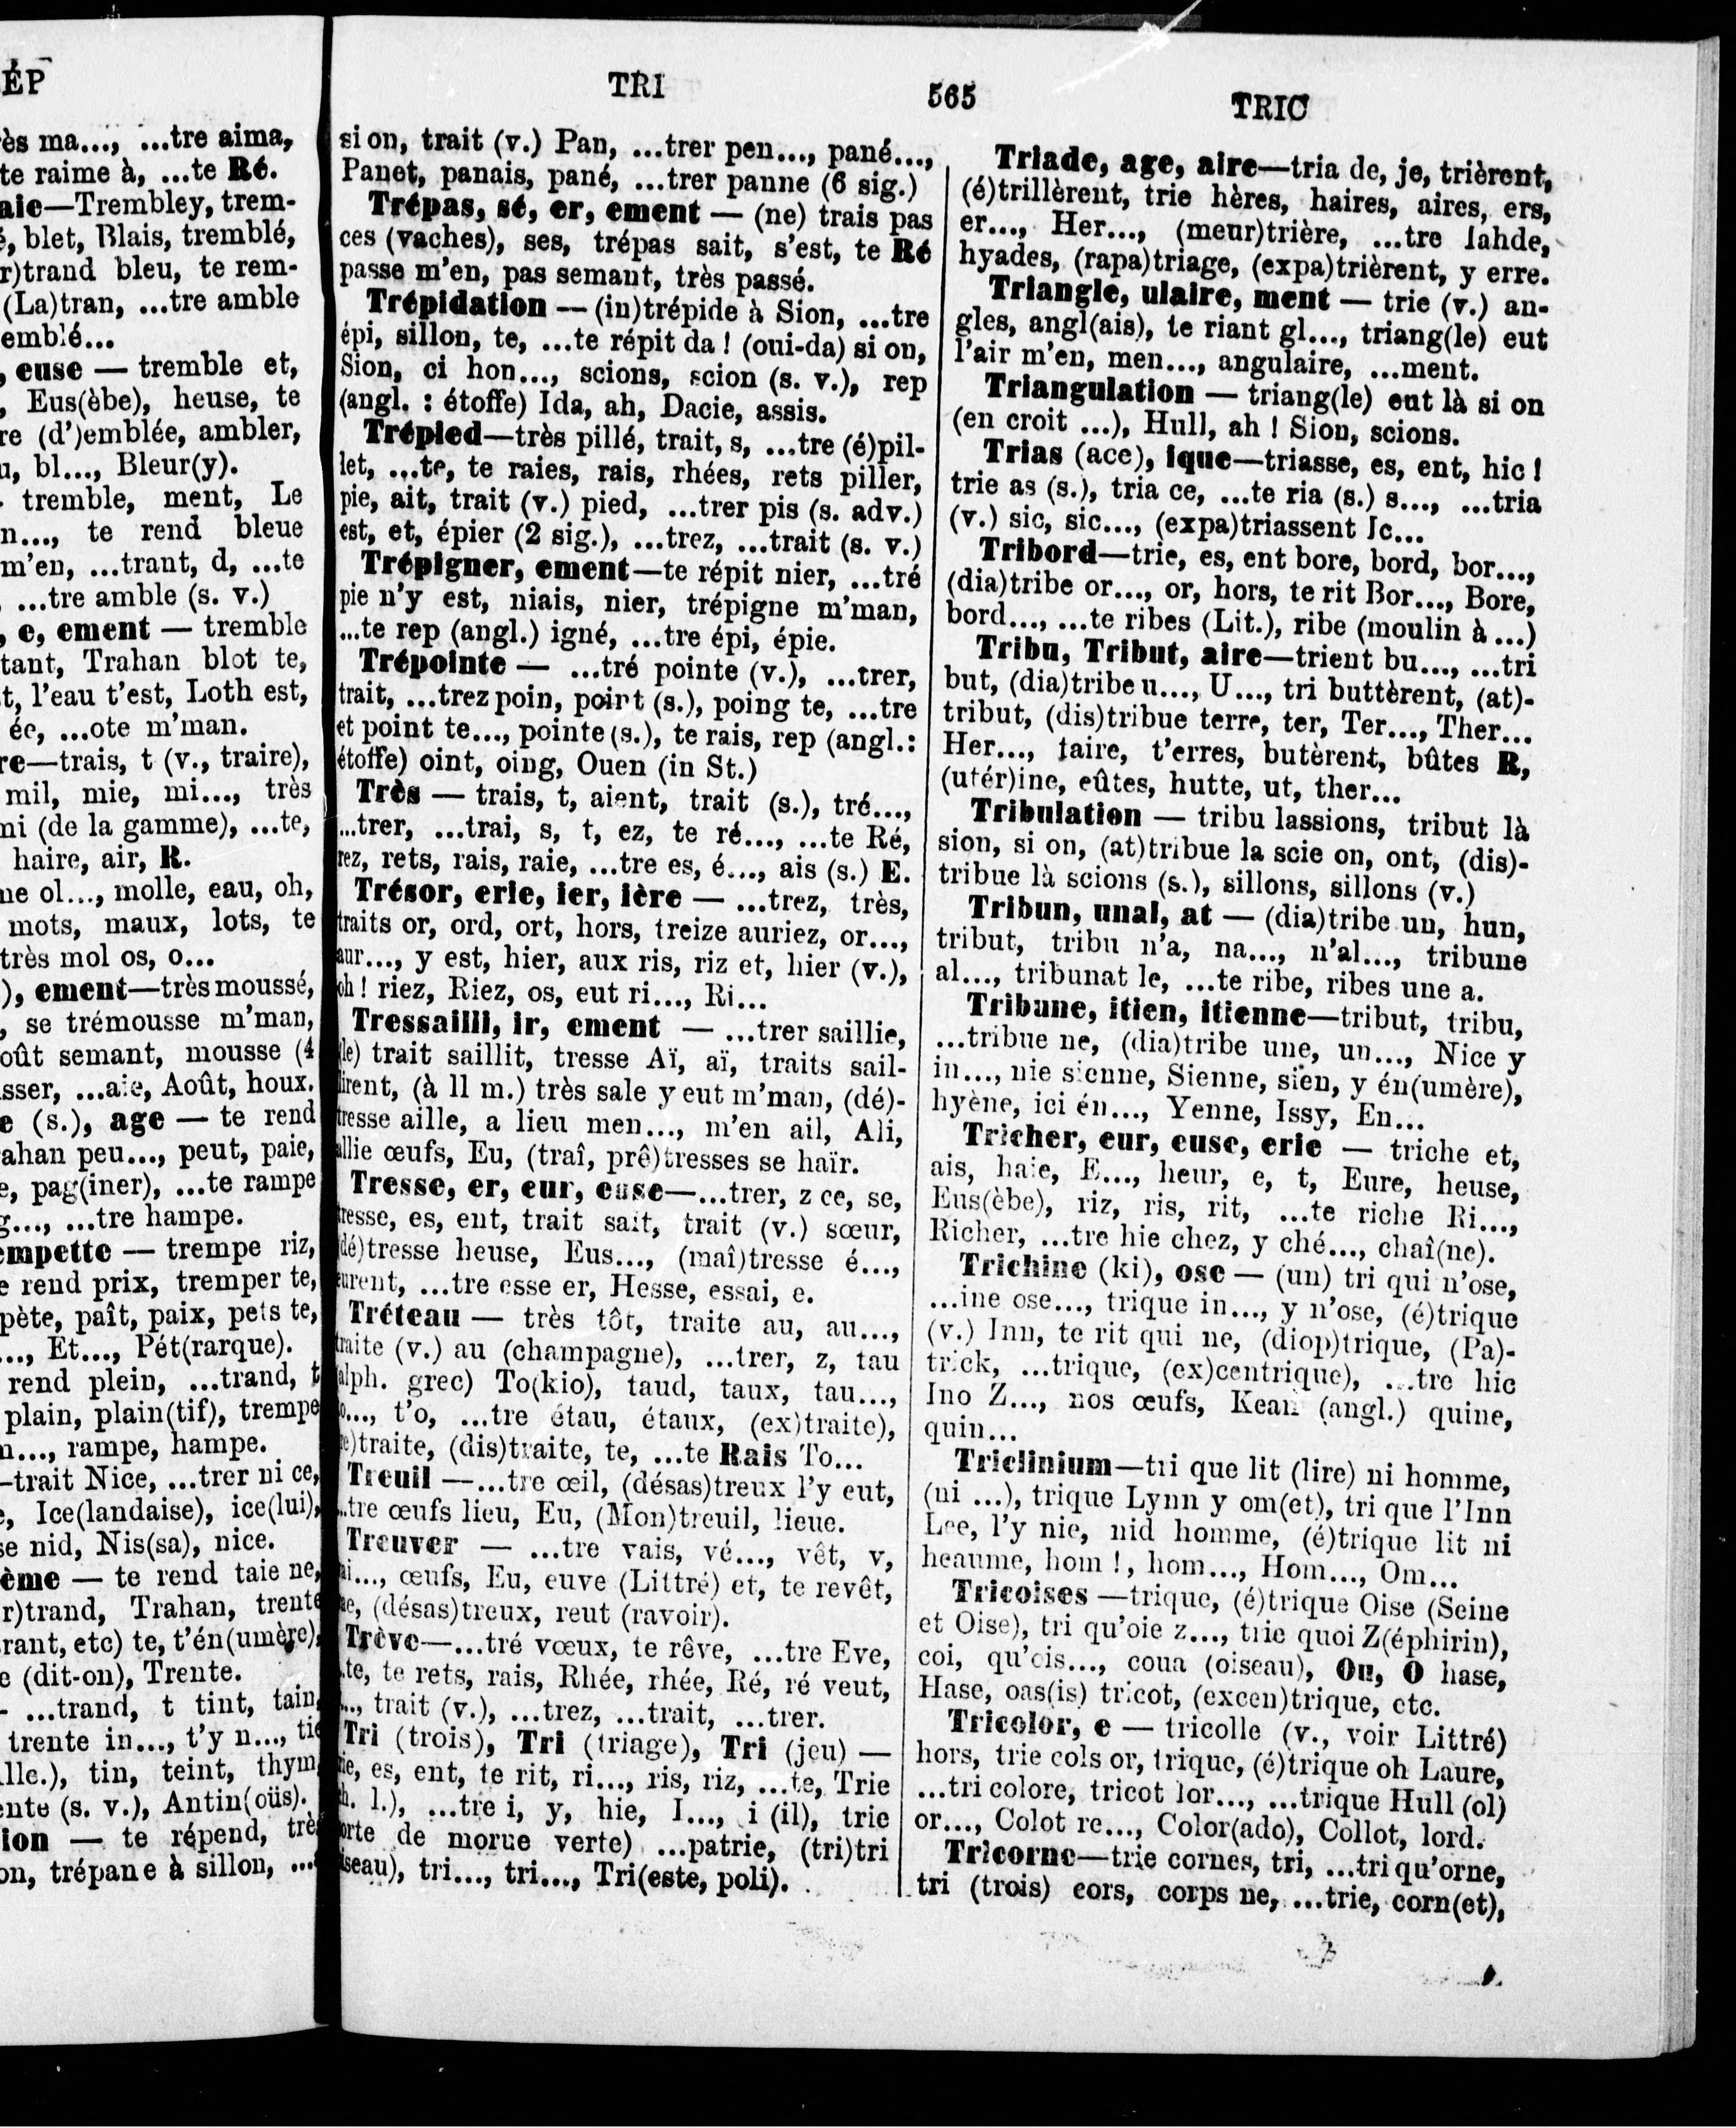 ÉP
ès ma..., ...tre aima,
te raime à, ...te Ré.
aie—Trembley, trem-
é, blet, Blais, tremblé,
r)trand bleu, te rem-
(La)tran, ...tre amble
emblé...
, euse — tremble et,
, Eus(èbe), heuse, te
re (d')emblée, ambler,
u, bl..., Bleur(y).
tremble, ment, Le
n..., te rend bleue
m'en, ...trant, d, ...te
...tre amble (s. v.)
, e, ement — tremble
tant, Trahan blot te,
t, l'eau t'est, Loth est,
ée, ...ote m'man.
re—trais, t (v., traire),
mil, mie, mi..., très
mi (de la gamme), ...te,
haire, air, R.
me ol..., molle, eau, oh,
mots, maux, lots, te
très mol os, o...
), ement—très moussé,
, se trémousse m'man,
oût semant, mousse (4
sser, ...aie, Août, houx.
e (s.), age — te rend
ahan peu..., peut, paie,
e, pag(iner), ...te rampe
g..., ...tre hampe.
empette — trempe riz,
e rend prix, tremper te,
pète, paît, paix, pets te,
..., Et..., Pét(rarque).
rend plein, ...trand, t
plain, plain(tif), trempe
n..., rampe, hampe.
—trait Nice, ...trer ni ce,
e, Ice(landaise), ice(lui),
se nid, Nis(sa), nice.
ème — te rend taie ne,
r)trand, Trahan, trente
rant, etc) te, t'én(umère),
e (dit-on), Trente.
- ...trand, t tint, tain,
trente in..., t'y n..., tie
lle.), tin, teint, thym,
ente (s. v.), Antin(oüs).
ion — te répend, très
on, trépane à sillon, ...
TRI
565
TRIC
sion, trait (v.) Pan, ...trer pen..., pané...,
Panet, panais, pané, ...trer panne (6 sig.)
Trépas, sé, er, ement — (ne) trais pas
ces (vaches), ses, trépas sait, s'est, te Ré
passe m'en, pas semant, très passé.
Trépidation — (in)trépide à Sion, ...tre
épi, sillon, te, ...te répit da ! (oui-da) si on,
Sion, ci hon..., scions, scion (s. v.), rep
(angl. : étoffe) Ida, ah, Dacie, assis.
Trépied—très pillé, trait, s, ...tre (é)pil-
let, ...te, te raies, rais, rhées, rets piller,
pie, ait, trait (v.) pied, ...trer pis (s. adv.)
est, et, épier (2 sig.), ...trez, ...trait (s. v.)
Trépigner, ement—te répit nier, ...tré
pie n'y est, niais, nier, trépigne m'man,
...te rep (angl.) igné, ...tre épi, épie.
Trépointe — ...tré pointe (v.), ...trer,
trait, ...trez poin, point (s.), poing te, ...tre
et point te..., pointe (s.), te rais, rep (angl.:
étoffe) oint, oing, Ouen (in St.)
Très — trais, t, aient, trait (s.), tré...,
...trer, ...trai, s, t, ez, te ré..., ...te Ré,
rez, rets, rais, raie, ...tre es, é..., ais (s.) E.
Trésor, erie, ier, ière — ...trez, très,
traits or, ord, ort, hors, treize auriez, or...,
aur..., y est, hier, aux ris, riz et, hier (v.),
oh ! riez, Riez, os, eut ri..., Ri...
Tressailli, ir, ement — ...trer saillie,
(le) trait saillit, tresse Aï, aï, traits sail-
lirent, (à ll m.) très sale y eut m'man, (dé)-
tresse aille, a lieu men..., m'en ail, Ali,
allie œufs, Eu, (traî, prê)tresses se haïr.
Tresse, er, eur, euse—...trer, z ce, se,
tresse, es, ent, trait sait, trait (v.) sœur,
(dé)tresse heuse, Eus..., (maî)tresse é...,
eurent, ...tre esse er, Hesse, essai, e.
Tréteau — très tôt, traite au, au...,
traite (v.) au (champagne), ...trer, z, tau
(alph. grec) To(kio), taud, taux, tau...,
o..., t'o, ...tre étau, étaux, (ex)traite),
re)traite, (dis)traite, te, ...te Rais To...
Treuil —...tre œil, (désas)treux l'y eut,
...tre œufs lieu, Eu, (Mon)treuil, lieue.
Treuver — ...tre vais, vé..., vêt, v,
ai..., œufs, Eu, euve (Littré) et, te revêt,
ne, (désas)treux, reut (ravoir).
Trève—...tré vœux, te rêve, ...tre Eve,
.te, te rets, rais, Rhée, rhée, Ré, ré veut,
..., trait (v.), ...trez, ...trait, ...trer.
Tri (trois), Tri (triage), Tri (jeu) —
rie, es, ent, te rit, ri..., ris, riz, ...te, Trie
ch. l.), ...tre i, y, hie, I..., i (il), trie
orte de morue verte) ...patrie, (tri)tri
iseau), tri..., tri..., Tri(este, poli).
Triade, age, aire—tria de, je, trièrent,
(é)trillèrent, trie hères, haires, aires, ers,
er..., Her..., (meur)trière, ...tre Iahde,
hyades, (rapa)triage, (expa)trièrent, y erre.
Triangle, ulaire, ment — trie (v.) an-
gles, angl(ais), te riant gl..., triang(le) eut
l'air m'en, men..., angulaire, ...ment.
Triangulation — triang(le) eut là si on
(en croit ...), Hull, ah ! Sion, scions.
Trias (ace), ique—triasse, es, ent, hic !
trie as (s.), tria ce, ...te ria (s.) s..., ...tria
(v.) sic, sic..., (expa)triassent Ic...
Tribord—trie, es, ent bore, bord, bor...,
(dia)tribe or..., or, hors, te rit Bor..., Bore,
bord..., ...te ribes (Lit.), ribe (moulin à ...)
Tribu, Tribut, aire—trient bu..., ...tri
but, (dia)tribe u..., U..., tri buttèrent, (at)-
tribut, (dis)tribue terre, ter, Ter..., Ther...
Her..., taire, t'erres, butèrent, bûtes R,
(utér)ine, eûtes, hutte, ut, ther...
Tribulation — tribu lassions, tribut là
sion, si on, (at)tribue la scie on, ont, (dis)-
tribue là scions (s.), sillons, sillons (v.)
Tribun, unal, at — (dia)tribe un, hun,
tribut, tribu n'a, na..., n'al..., tribune
al..., tribunat le, ...te ribe, ribes une a.
Tribune, itien, itienne—tribut, tribu,
...tribue ne, (dia)tribe une, un..., Nice y
in..., nie sienne, Sienne, sien, y én(umère),
hyène, ici én..., Yenne, Issy, En...
Tricher, eur, euse, erie — triche et,
ais, haie, E..., heur, e, t, Eure, heuse,
Eus(èbe), riz, ris, rit, ...te riche Ri...,
Richer, ...tre hie chez, y ché..., chaî(ne).
Trichine (ki), ose — (un) tri qui n'ose,
...ine ose..., trique in..., y n'ose, (é)trique
(v.) Inn, te rit qui ne, (diop)trique, (Pa)-
trick, ...trique, (ex)centrique), ...tre hic
Ino Z..., nos œufs, Kean (angl.) quine,
quin...
Triclinium—tri que lit (lire) ni homme,
(ni ...), trique Lynn y om(et), tri que l'Inn
Lee, l'y nie, nid homme, (é)trique lit ni
heaume, hom !, hom..., Hom..., Om...
Tricoises —trique, (é)trique Oise (Seine
et Oise), tri qu'oie z..., trie quoi Z(éphirin),
coi, qu'ois..., coua (oiseau), Ou, O hase,
Hase, oas(is) tricot, (excen)trique, etc.
Tricolor, e — tricolle (v., voir Littré)
hors, trie cols or, trique, (é)trique oh Laure,
...tri colore, tricot lor..., ...trique Hull (ol)
or..., Colot re..., Color(ado), Collot, lord.
Tricorne—trie cornes, tri, ...tri qu'orne,
tri (trois) cors, corps ne, ...trie, corn(et),